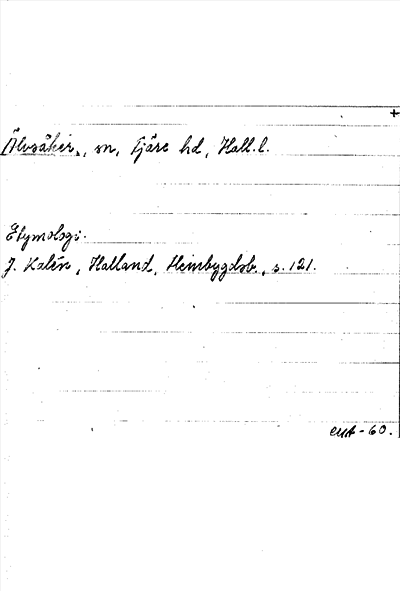 +
Älvsåker, sn, Fjäre hd, Hall.l.
Etymologi:
J. Kalén, Halland, Hembygdsb., s. 121.
-60.